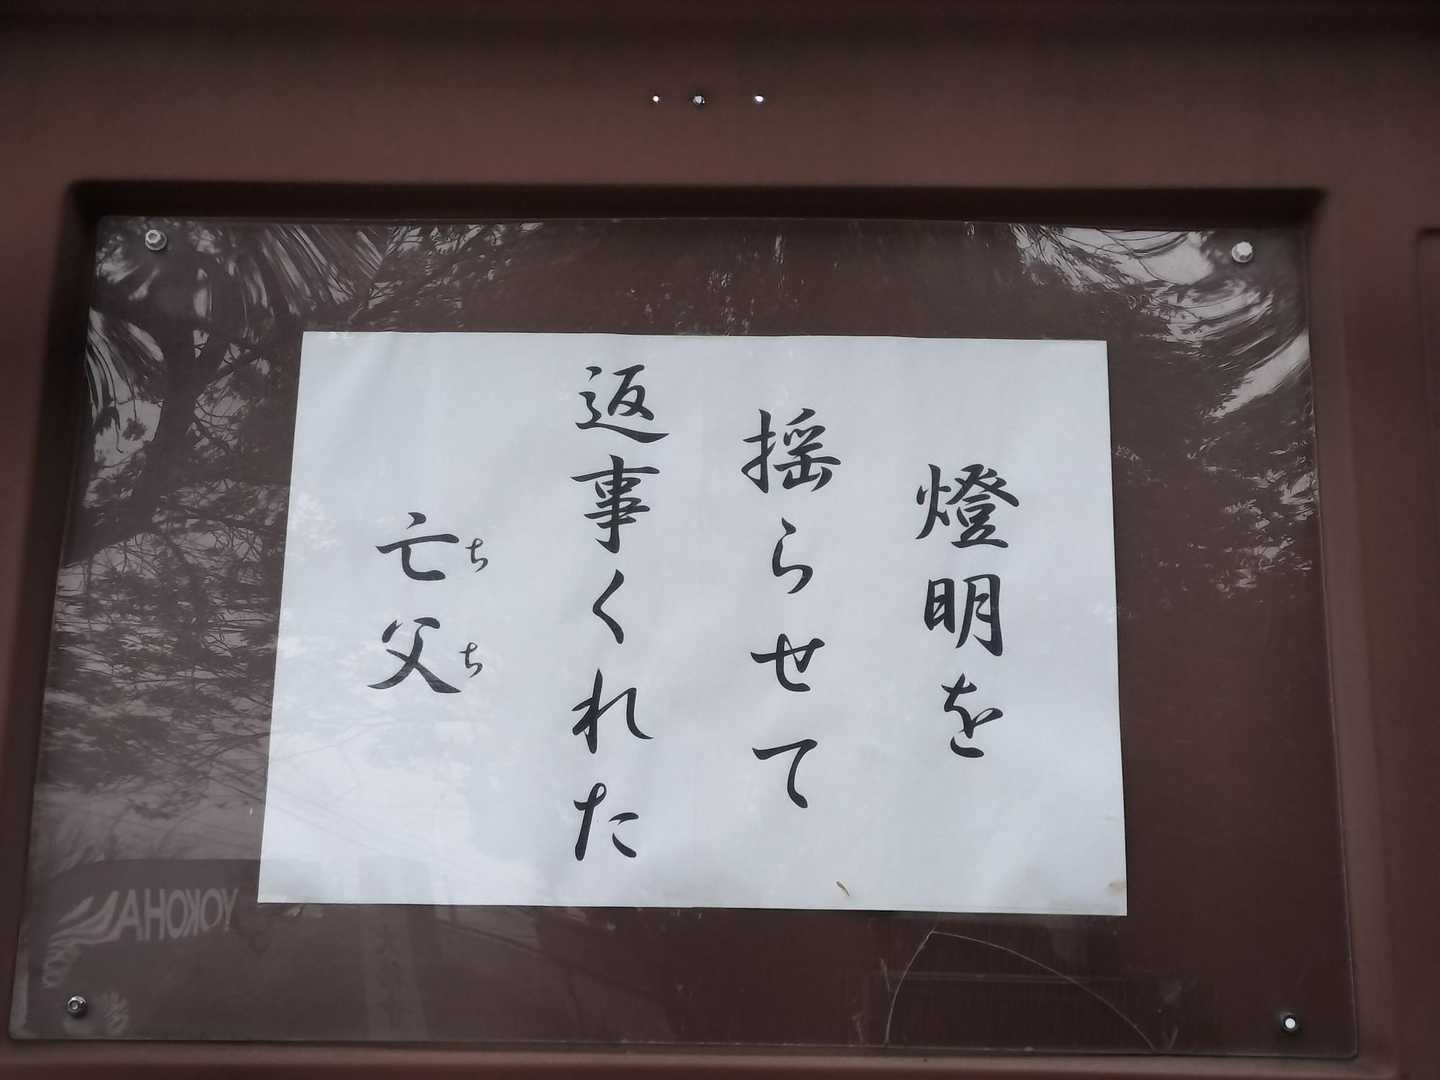 燈明を
揺らせて
返事くれた
亡父
ちち
YOKOHA